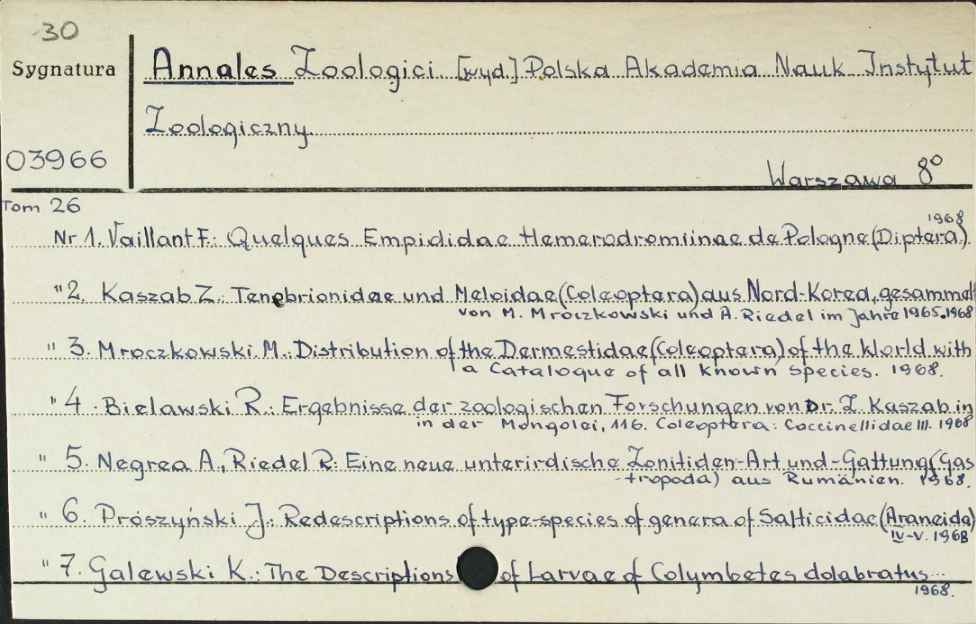 30
Sygnatura
Annales Zoologici [wyd.] Polska Akademia Nauk Instytut
Zoologiczny.
03966
Warszawa 8°
Tom 26
Nr 1. Vaillant F.: Quelques Empididae Hemerodromiinae de Pologne (Diptera). 1968
"2. Kaszab Z.: Tenebrionidae und Meloidae (Coleoptera) aus Nord-Korea, gesammelt
von M. Mroczkowski und A. Riedel im Jahre 1965. 1968
" 3. Mroczkowski M.: Distribution of the Dermestidae (Coleoptera) of the World with
a Catalogue of all known species. 1968.
" 4. Bielawski R.: Ergebnisse der zoologischen Forschungen von Dr. Z. Kaszab in
in der Mongolei, 116. Coleoptera: Coccinellidae III. 1968
" 5. Negrea A., Riedel R.: Eine neue unterirdische Zonitiden-Art und -Gattung (Gas
-tropoda) aus Rumänien. 1968.
" 6. Prószyński J.: Redescriptions of type-species of genera of Salticidae (Araneida)
IV-V. 1968
" 7. Galewski K.: The Descriptions of Larvae of Colymbetes dolabratus...
1968.